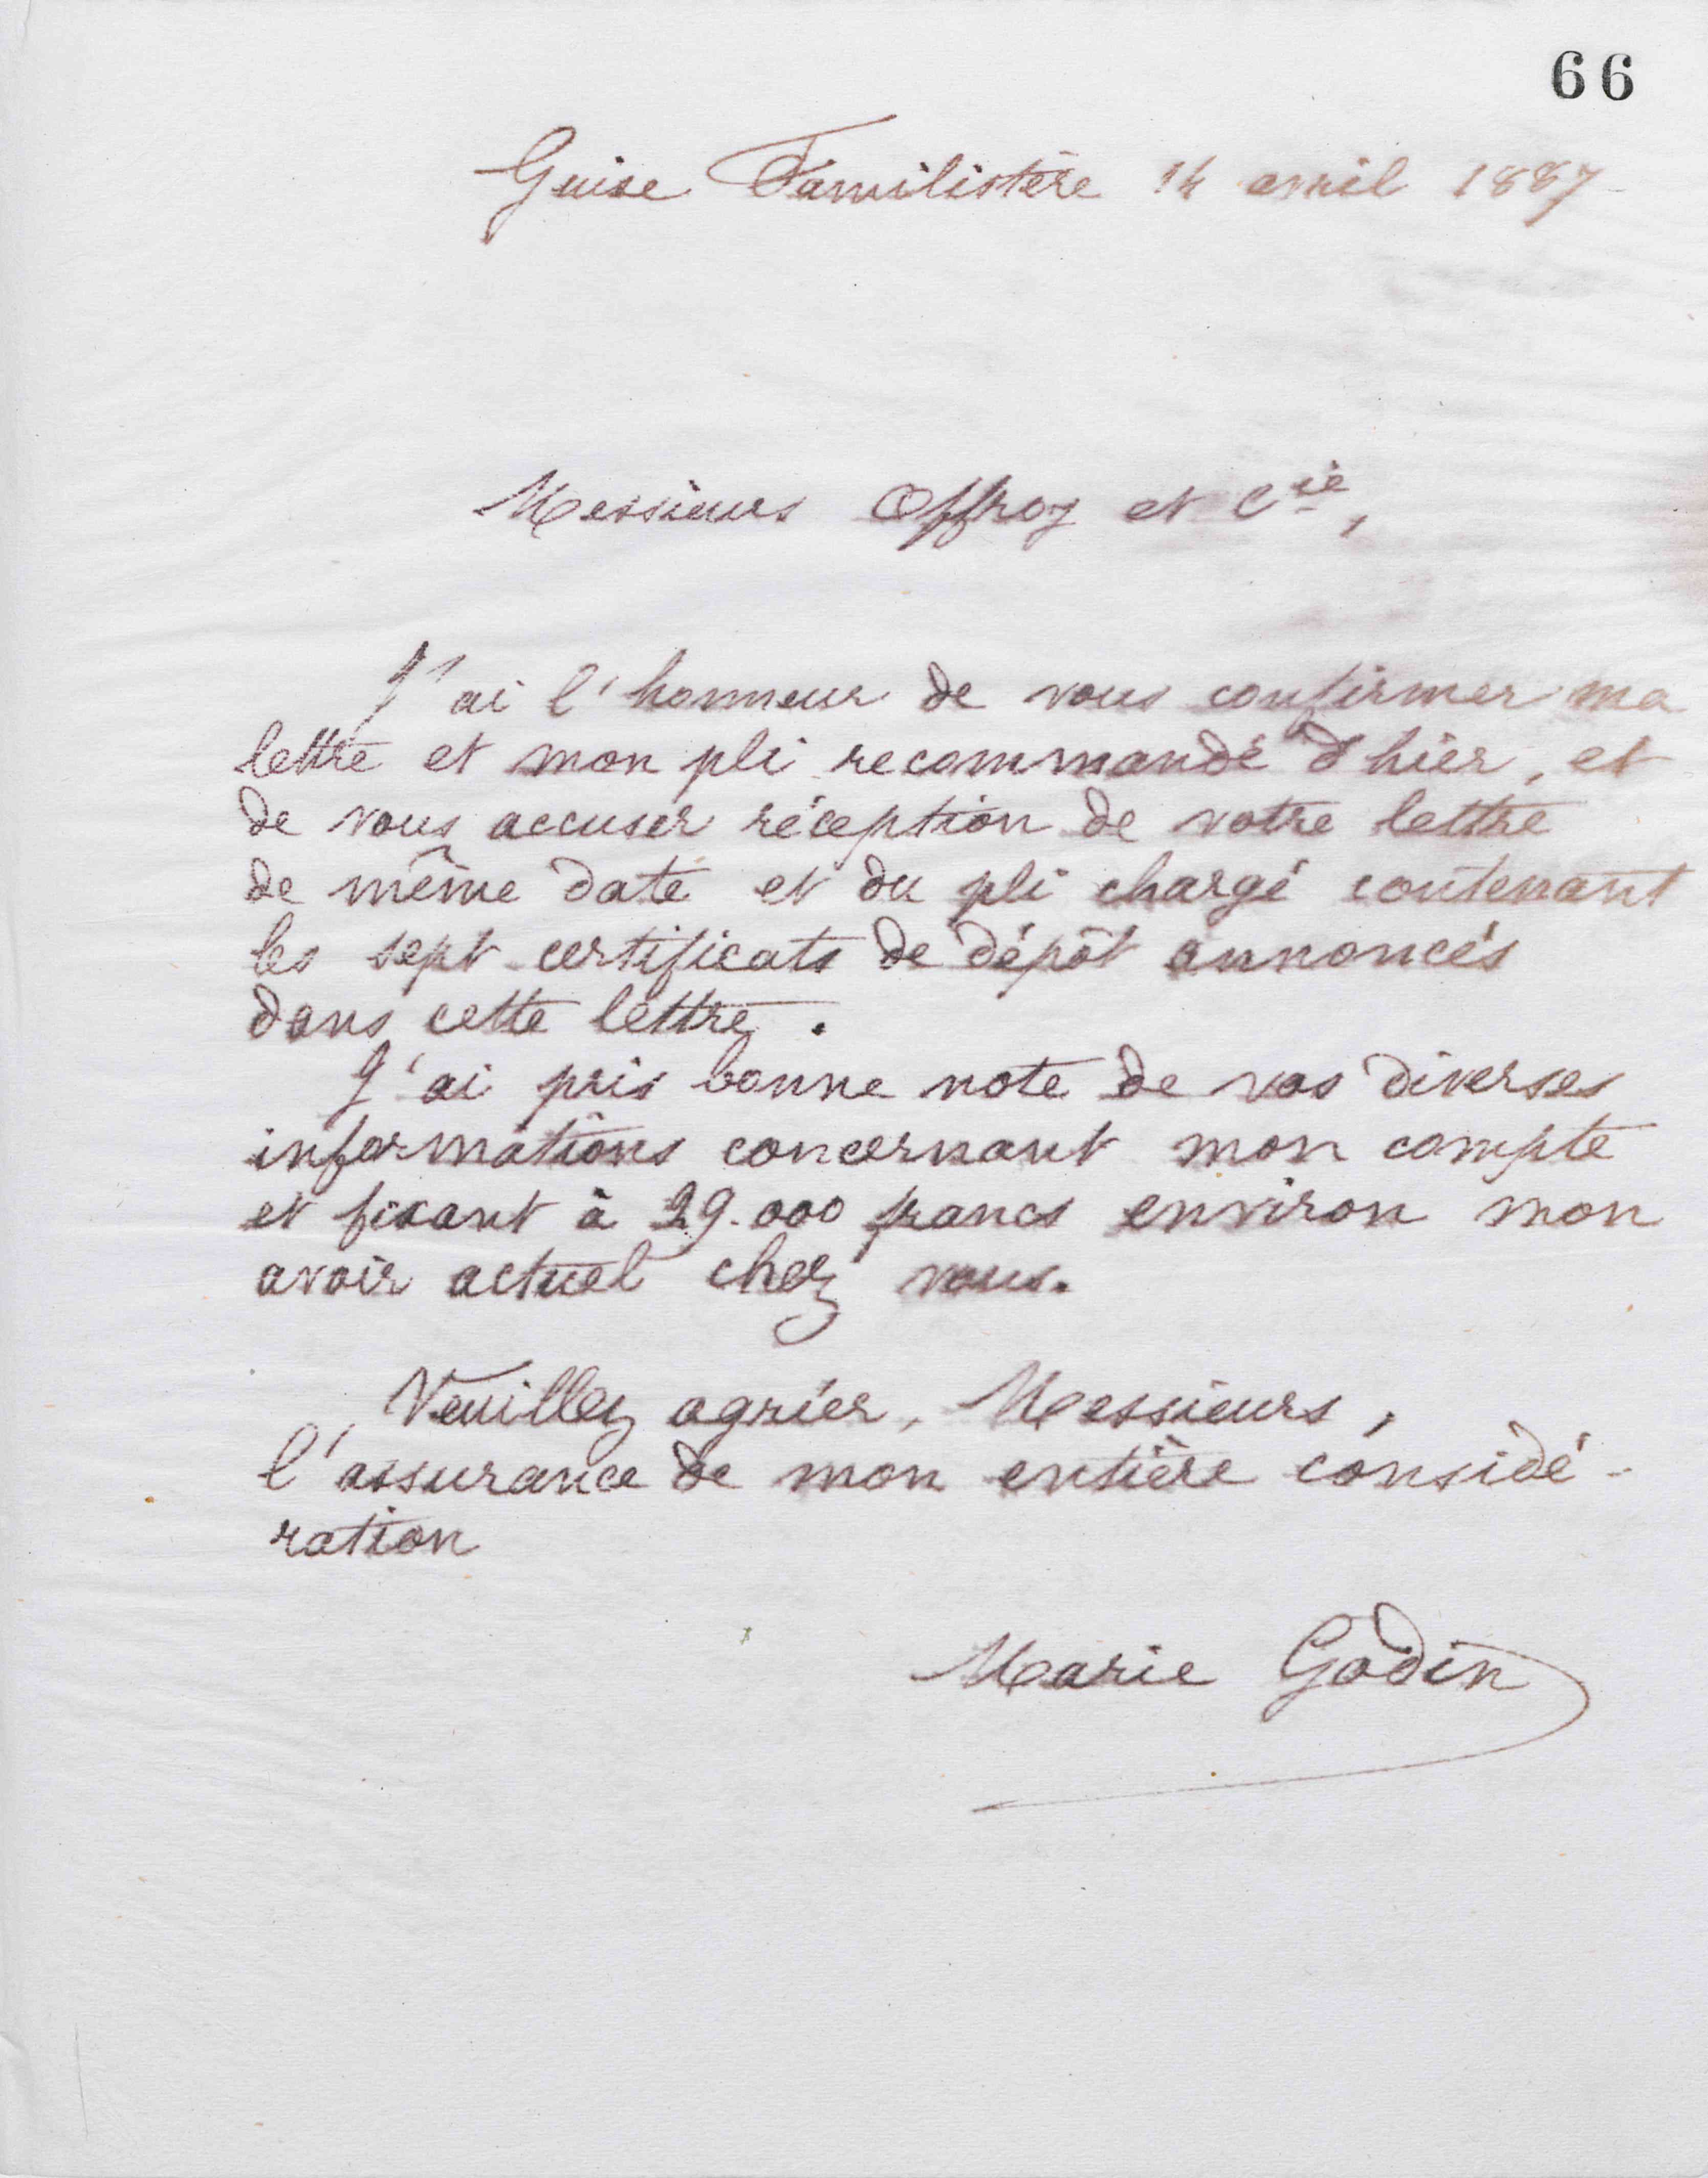 66
Guise Familistère 14 avril 1887
Messieurs Offroy et Cie,
J'ai l'honneur de vous confirmer ma
lettre et mon pli recommandé d'hier, et
de vous accuser réception de votre lettre
de même date et du pli chargé contenant
les sept certificats de dépôt annoncés
dans cette lettre.
J'ai pris bonne note de vos diverses
informations concernant mon compte
et fixant à 29.000 francs environ mon
avoir actuel chez vous.
Veuillez agréer, Messieurs,
l'assurance de mon entière considé-
ration
Marie Godin